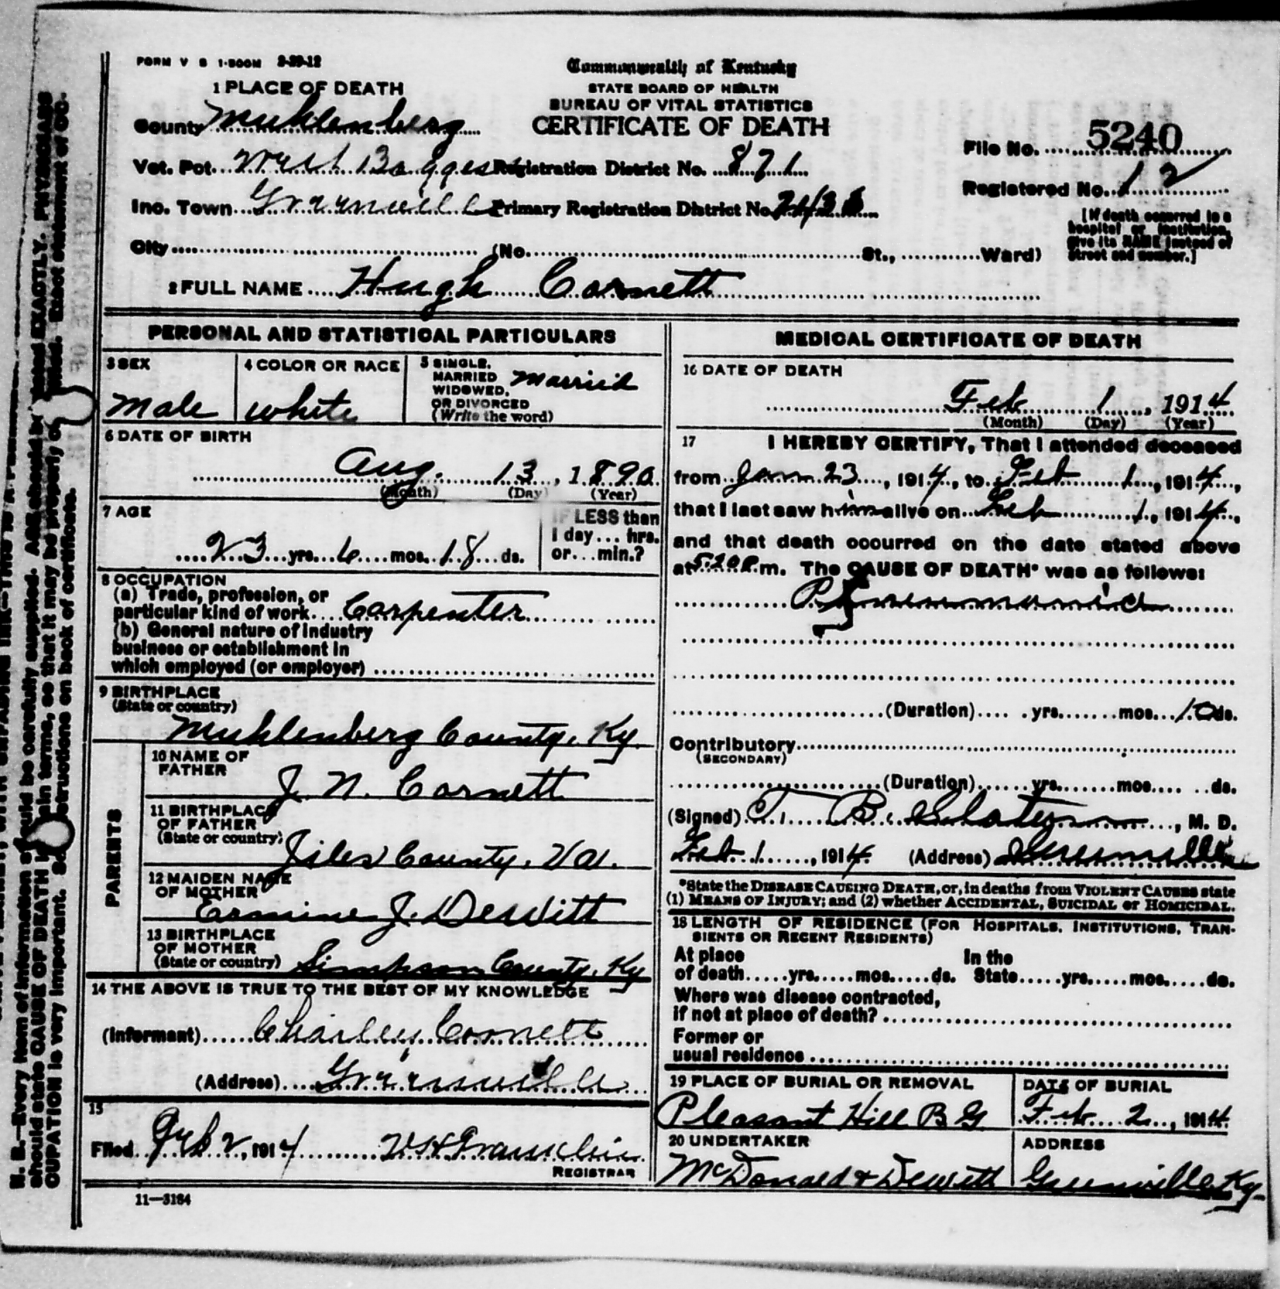 FORM V S 1-500M 3-29-12
Commonwealth of Kentucky
STATE BOARD OF HEALTH
BUREAU OF VITAL STATISTICS
CERTIFICATE OF DEATH
1 PLACE OF DEATH
County Muhlenberg
Vot. Pct. West Boggess Registration District No. 871
Ino. Town Greenville Primary Registration District No.
City (No. St., Ward)
File No. 5240
Registered No. 12
[If death occurred in a
hospital or institution,
give its NAME instead of
street and number.]
2 FULL NAME Hugh Cornett
PERSONAL AND STATISTICAL PARTICULARS
3 SEX
Male
4 COLOR OR RACE
white
5 SINGLE,
MARRIED
WIDOWED,
OR DIVORCED
(Write the word)
Married
6 DATE OF BIRTH
Aug. 13, 1890
(Month) (Day) (Year)
7 AGE
23 yrs. 6 mos. 18 ds.
IF LESS than
1 day... hrs.
or... min.?
8 OCCUPATION
(a) Trade, profession, or
particular kind of work Carpenter
(b) General nature of industry
business or establishment in
which employed (or employer)
9 BIRTHPLACE
(State or country)
Muhlenberg County, Ky.
PARENTS
10 NAME OF
FATHER
J. N. Cornett
11 BIRTHPLACE
OF FATHER
(State or country)
Jiles County, Va.
12 MAIDEN NAME
OF MOTHER
Ermine J. DeWitt
13 BIRTHPLACE
OF MOTHER
(State or country) Simpson County, Ky
14 THE ABOVE IS TRUE TO THE BEST OF MY KNOWLEDGE
(Informant) Charley Cornett
(Address) Greenville
15
Filed Feb 2, 1914
REGISTRAR
11—3184
MEDICAL CERTIFICATE OF DEATH
16 DATE OF DEATH
Feb 1, 1914
(Month) (Day) (Year)
17 I HEREBY CERTIFY, That I attended deceased
from Jan 23, 1914, to Feb 1, 1914,
that I last saw him alive on Feb 1, 1914,
and that death occurred on the date stated above
at 5:20 P. m. The CAUSE OF DEATH* was as follows:
Pneumonia
(Duration) yrs. mos. 10 ds.
Contributory
(SECONDARY)
(Duration) yrs. mos. ds.
(Signed) T. B. Slaton, M. D.
Feb 1, 1914 (Address) Greenville
*State the DISEASE CAUSING DEATH, or, in deaths from VIOLENT CAUSES state
(1) MEANS OF INJURY; and (2) whether ACCIDENTAL, SUICIDAL or HOMICIDAL.
18 LENGTH OF RESIDENCE (FOR HOSPITALS, INSTITUTIONS, TRAN-
SIENTS OR RECENT RESIDENTS)
At place
of death yrs. mos. ds.
In the
State yrs. mos. ds.
Where was disease contracted,
if not at place of death?
Former or
usual residence
19 PLACE OF BURIAL OR REMOVAL
Pleasant Hill B G
DATE OF BURIAL
Feb 2, 1914
20 UNDERTAKER
McDonald & Dewitt
ADDRESS
Greenville Ky.
N. B.—Every item of information should be carefully supplied. AGE should be stated EXACTLY. PHYSICIANS
should state CAUSE OF DEATH in plain terms, so that it may be properly classified. Exact statement of OC-
CUPATION is very important. See instructions on back of certificate.